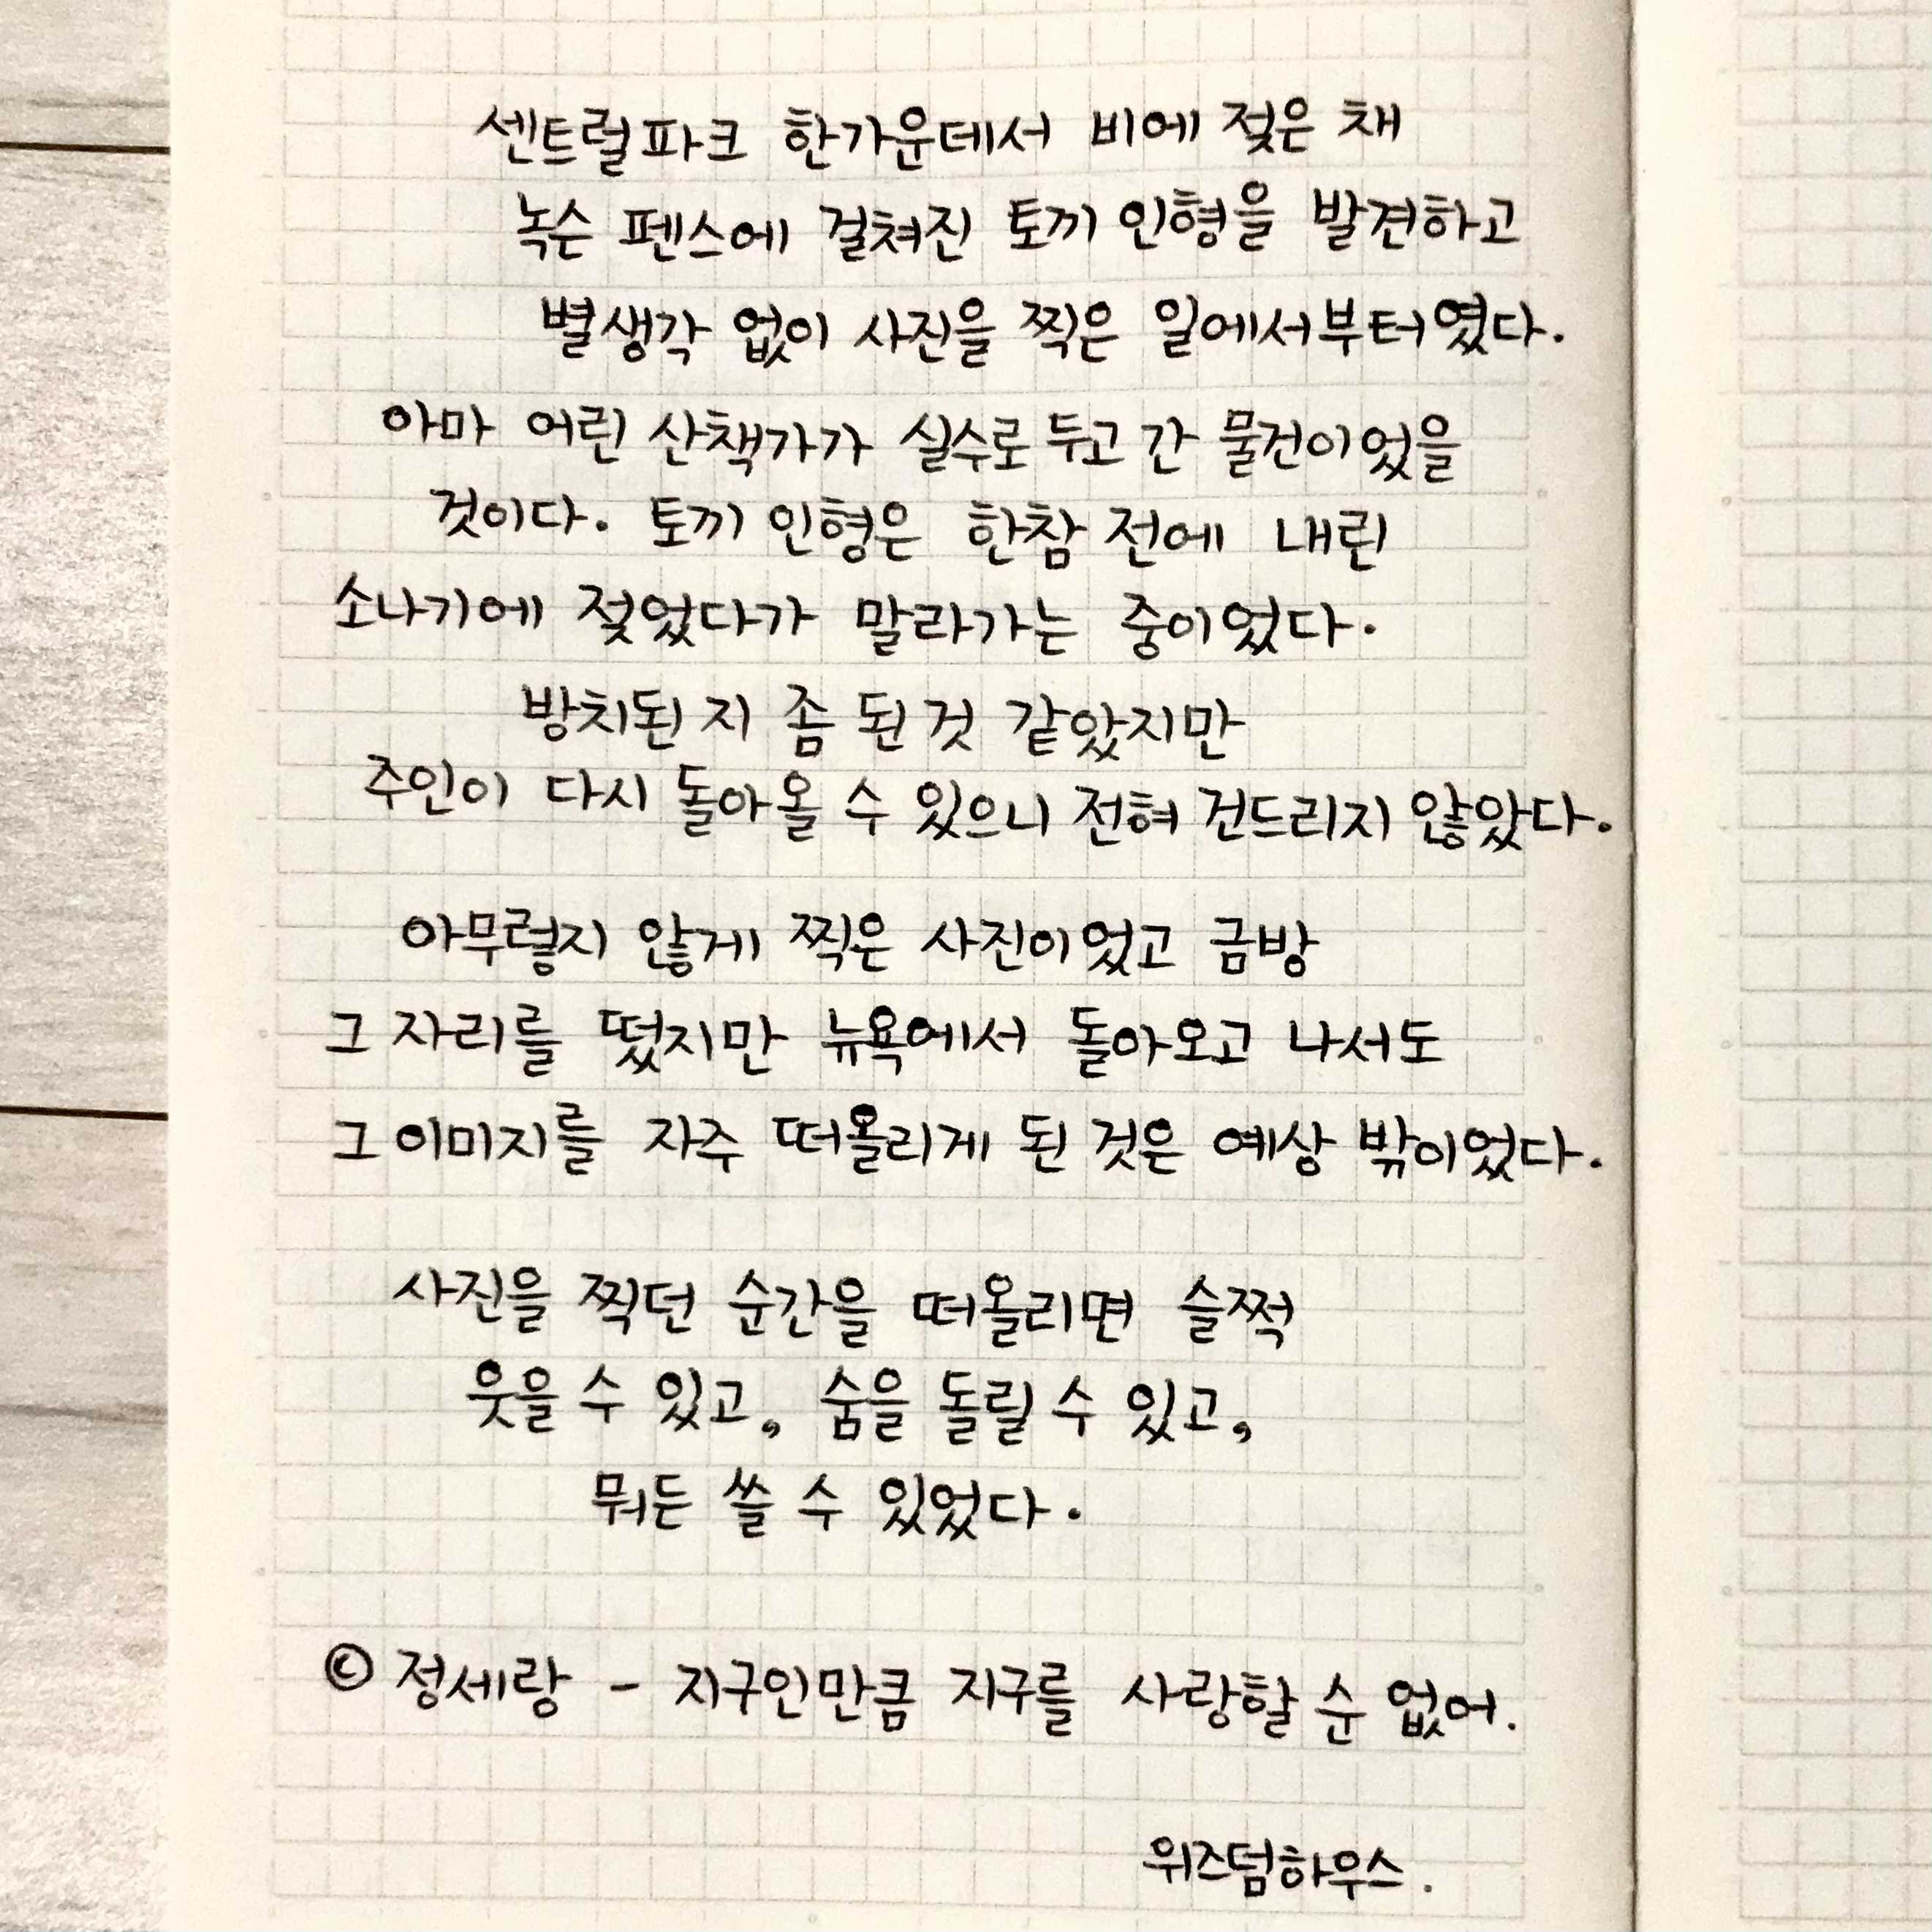 센트럴파크 한가운데서 비에 젖은 채
녹슨 펜스에 걸쳐진 토끼 인형을 발견하고
별생각 없이 사진을 찍은 일에서부터였다.
아마 어린 산책가가 실수로 두고 간 물건이었을
것이다. 토끼 인형은 한참 전에 내린
소나기에 젖었다가 말라가는 중이었다.
방치된 지 좀 된 것 같았지만
주인이 다시 돌아올 수 있으니 전혀 건드리지 않았다.
아무렇지 않게 찍은 사진이었고 금방
그 자리를 떴지만 뉴욕에서 돌아오고 나서도
그 이미지를 자주 떠올리게 된 것은 예상 밖이었다.
사진을 찍던 순간을 떠올리면 슬쩍
웃을 수 있고, 숨을 돌릴 수 있고,
뭐든 쓸 수 있었다.
© 정세랑 - 지구인만큼 지구를 사랑할 순 없어.
위즈덤하우스.